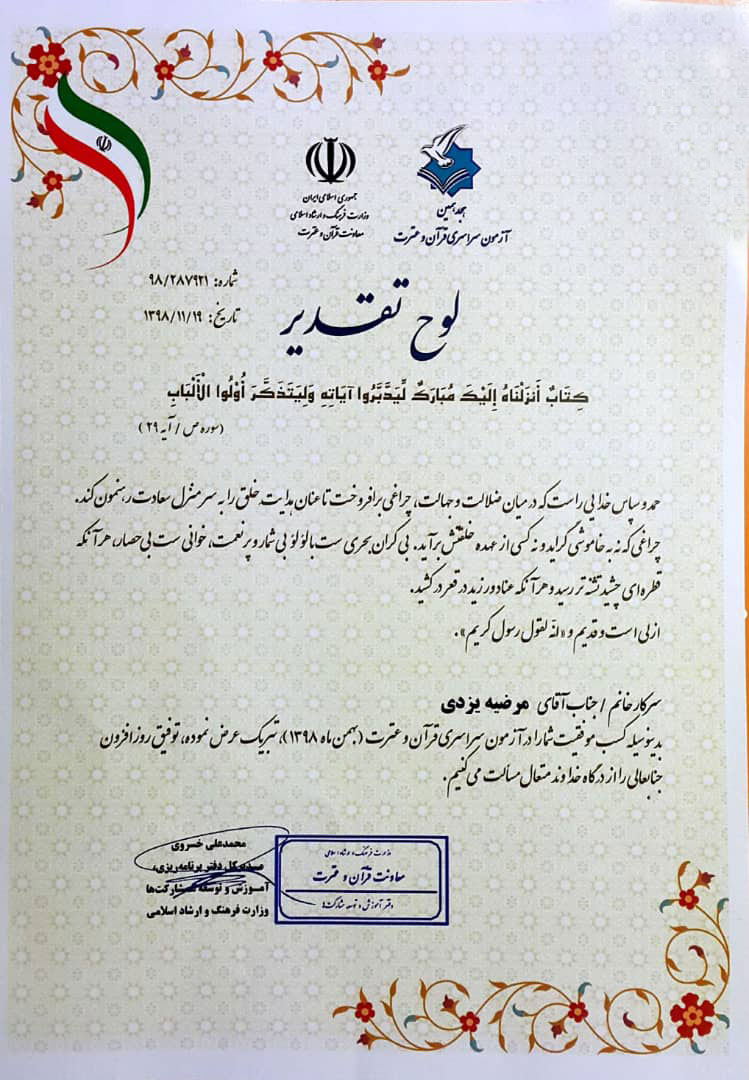 هجدهمین
آزمون سراسری قرآن و عترت
جمهوری اسلامی ایران
وزارت فرهنگ و ارشاد اسلامی
معاونت قرآن و عترت
شماره: ۹۸/۲۸۷۹۲۱
تاریخ: ۱۳۹۸/۱۱/۱۹
لوح تقدیر
كِتَابٌ أَنزَلْنَاهُ إِلَيْكَ مُبَارَكٌ لِّيَدَّبَّرُوا آيَاتِهِ وَلِيَتَذَكَّرَ أُوْلُوا الْأَلْبَابِ
(سوره ص / آیه ۲۹)
حمد و سپاس خدایی راست که در میان ضلالت و جهالت، چراغی برافروخت تا عنان هدایت خلق را به سر منزل سعادت رهنمون کند.
چراغی که نه به خاموشی گراید و نه کسی از عهده خلقتش برآید. بی کران بحری ست با لؤلؤ بی شمار و پر نعمت، خوانی ست بی حصار، هر آنکه
قطره ای چشید تشنه تر رسید و هر آنکه عناد ورزید در قعر در کشید.
ازلی است و قدیم و «انّه لقول رسول کریم».
سرکار خانم / جناب آقای مرضیه یزدی
بدینوسیله کسب موفقیت شما را در آزمون سراسری قرآن و عترت (بهمن ماه ۱۳۹۸)، تبریک عرض نموده، توفیق روز افزون
جنابعالی را از درگاه خداوند متعال مسألت می کنیم.
محمدعلی خسروی
مدیر کل دفتر برنامه‌ریزی،
آموزش و توسعه مشارکت‌ها
وزارت فرهنگ و ارشاد اسلامی
وزارت فرهنگ و ارشاد اسلامی
معاونت قرآن و عترت
دفتر آموزش و توسعه مشارکت‌ها